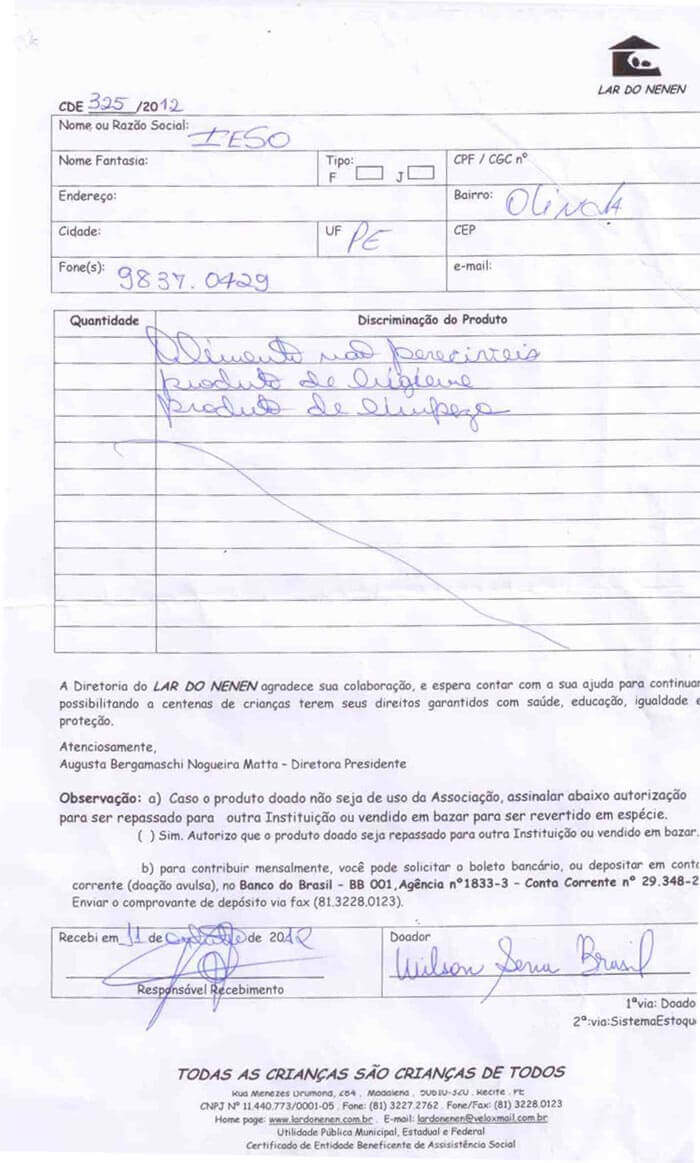 LAR DO NENEN
CDE 325 /2012
Nome ou Razão Social: IESO
Nome Fantasia: Tipo: F J CPF / CGC nº
Endereço: Bairro: Olinda
Cidade: UF PE CEP
Fone(s): 9837.0429 e-mail:
Quantidade Discriminação do Produto
Alimento não pereciveis
produto de higiene
produto de limpeza
A Diretoria do LAR DO NENEN agradece sua colaboração, e espera contar com a sua ajuda para continuar
possibilitando a centenas de crianças terem seus direitos garantidos com saúde, educação, igualdade e
proteção.
Atenciosamente,
Augusta Bergamaschi Nogueira Matta - Diretora Presidente
Observação: a) Caso o produto doado não seja de uso da Associação, assinalar abaixo autorização
para ser repassado para outra Instituição ou vendido em bazar para ser revertido em espécie.
( ) Sim. Autorizo que o produto doado seja repassado para outra Instituição ou vendido em bazar.
b) para contribuir mensalmente, você pode solicitar o boleto bancário, ou depositar em conta
corrente (doação avulsa), no Banco do Brasil - BB 001,Agência nº1833-3 - Conta Corrente nº 29.348-2
Enviar o comprovante de depósito via fax (81.3228.0123).
Recebi em 11 de de 2012 Doador
Wilson Sena Brasil
Responsável Recebimento
1ªvia: Doado
2ª:via:SistemaEstoqu
TODAS AS CRIANÇAS SÃO CRIANÇAS DE TODOS
Rua Menezes Drumond, 284 , Madalena , 50610-320 . Recife . PE
CNPJ Nº 11.440.773/0001-05 . Fone: (81) 3227.2762 . Fone/Fax: (81) 3228.0123
Home page: www.lardonenen.com.br . E-mail: lardonenen@veloxmail.com.br
Utilidade Pública Municipal, Estadual e Federal
Certificado de Entidade Beneficente de Assisistência Social